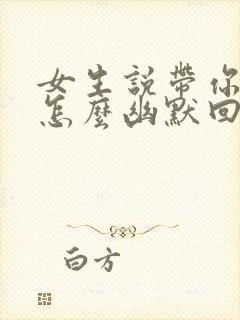 女生説帶你
怎麼幽默回
白方